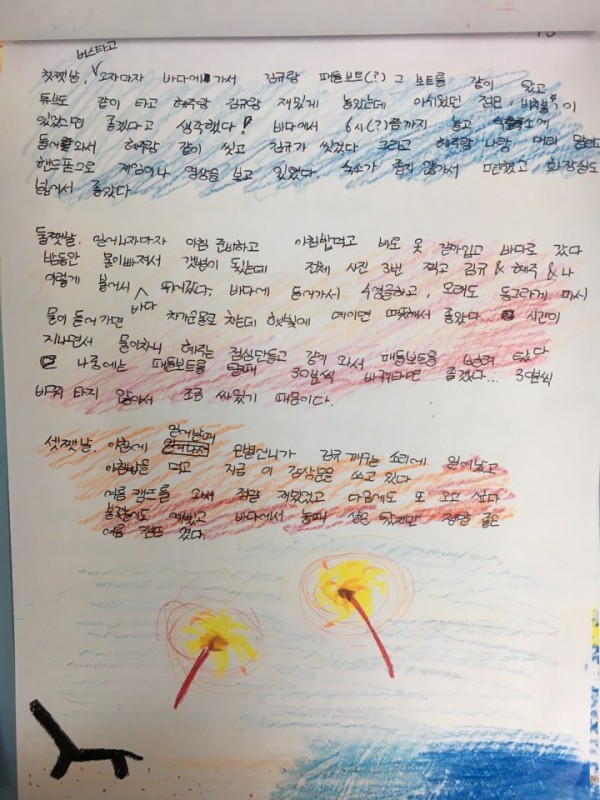 버스타고
첫쨋날. 오자마자 바다에 가서 김규랑 패들보트(?) 그 보트를 같이 타고
튜브도 같이 타고 혜주랑 김규랑 재밌게 놀았는데 아쉬웠던 점은 이
있었으면 좋겠다고 생각했다! 바다에서 6시(?)쯤까지 놀고 숙소에
들어와서 혜주랑 같이 씻고 김규가 씻겼다 그리고 혜주랑 나랑 머리 말리고
핸드폰으로 게임이나 영상을 보고 있었다. 숙소가 좁지 않아서 편했고 화장실도
넓어서 좋았다
둘쨋날. 일어나자마자 아침 준비하고 아침밥먹고 바로 옷 갈아입고 바다로 갔다
밤동안 물이빠져서 갯벌이 됬는데 전체 사진 3번 찍고 김규 & 혜주 & 나
이렇게 붙어서 바다 뛰어갔다. 바다에 들어가서 수영을하고, 모래도 동그랗게 파서
물이 들어가면 차가운물로 차는데 햇빛에 데이면 따뜻해서 좋았다... 시간이
지나면서 물이차니 혜주는 점심만들고 같이 와서 패들보트를 타
나중에는 패들보트를 탈때 30분씩 바꿔타면 좋겠다... 30분씩
바꿔 타지 않아서 조금 싸웠기 때문이다.
셋쨋날. 아침에 일어날때 은별언니가 김규 깨우는 소리에 일어났고
아침밥을 먹고 지금 이 감상문을 쓰고 있다
여름 캠프를 오니 정말 재밌었고 다음에도 또 오고 싶다
불꽃놀이도 예쁘고 바다에서 놀때 정말 좋은
여름 캠프 였다.